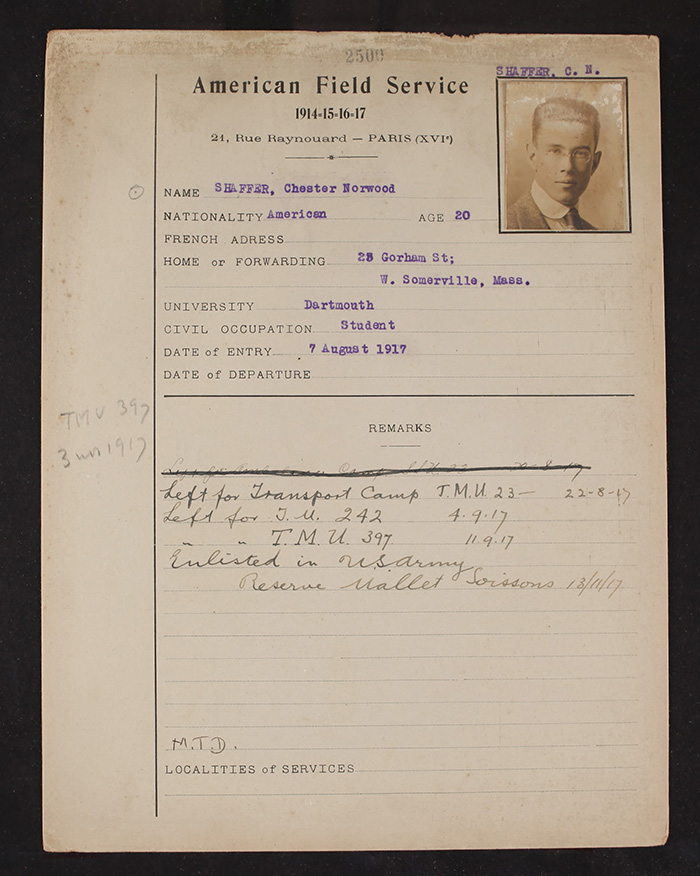 2500
SHAFFER, C. N.
American Field Service
1914-15-16-17
21, Rue Raynouard — PARIS (XVIe)
NAME SHAFFER, Chester Norwood
NATIONALITY American AGE 20
FRENCH ADRESS
HOME or FORWARDING 28 Gorham St;
W. Somerville, Mass.
UNIVERSITY Dartmouth
CIVIL OCCUPATION Student
DATE of ENTRY 7 August 1917
DATE of DEPARTURE
TMU 397
3 1917
REMARKS
Left for Transport Camp T.M.U. 23— 22-8-17
Left for T.U. 242 4.9.17
" " T.M.U. 397 11.9.17
Enlisted in U.S. Army
Reserve Mallet Soissons 13/11/17
M.T.D.
LOCALITIES of SERVICES